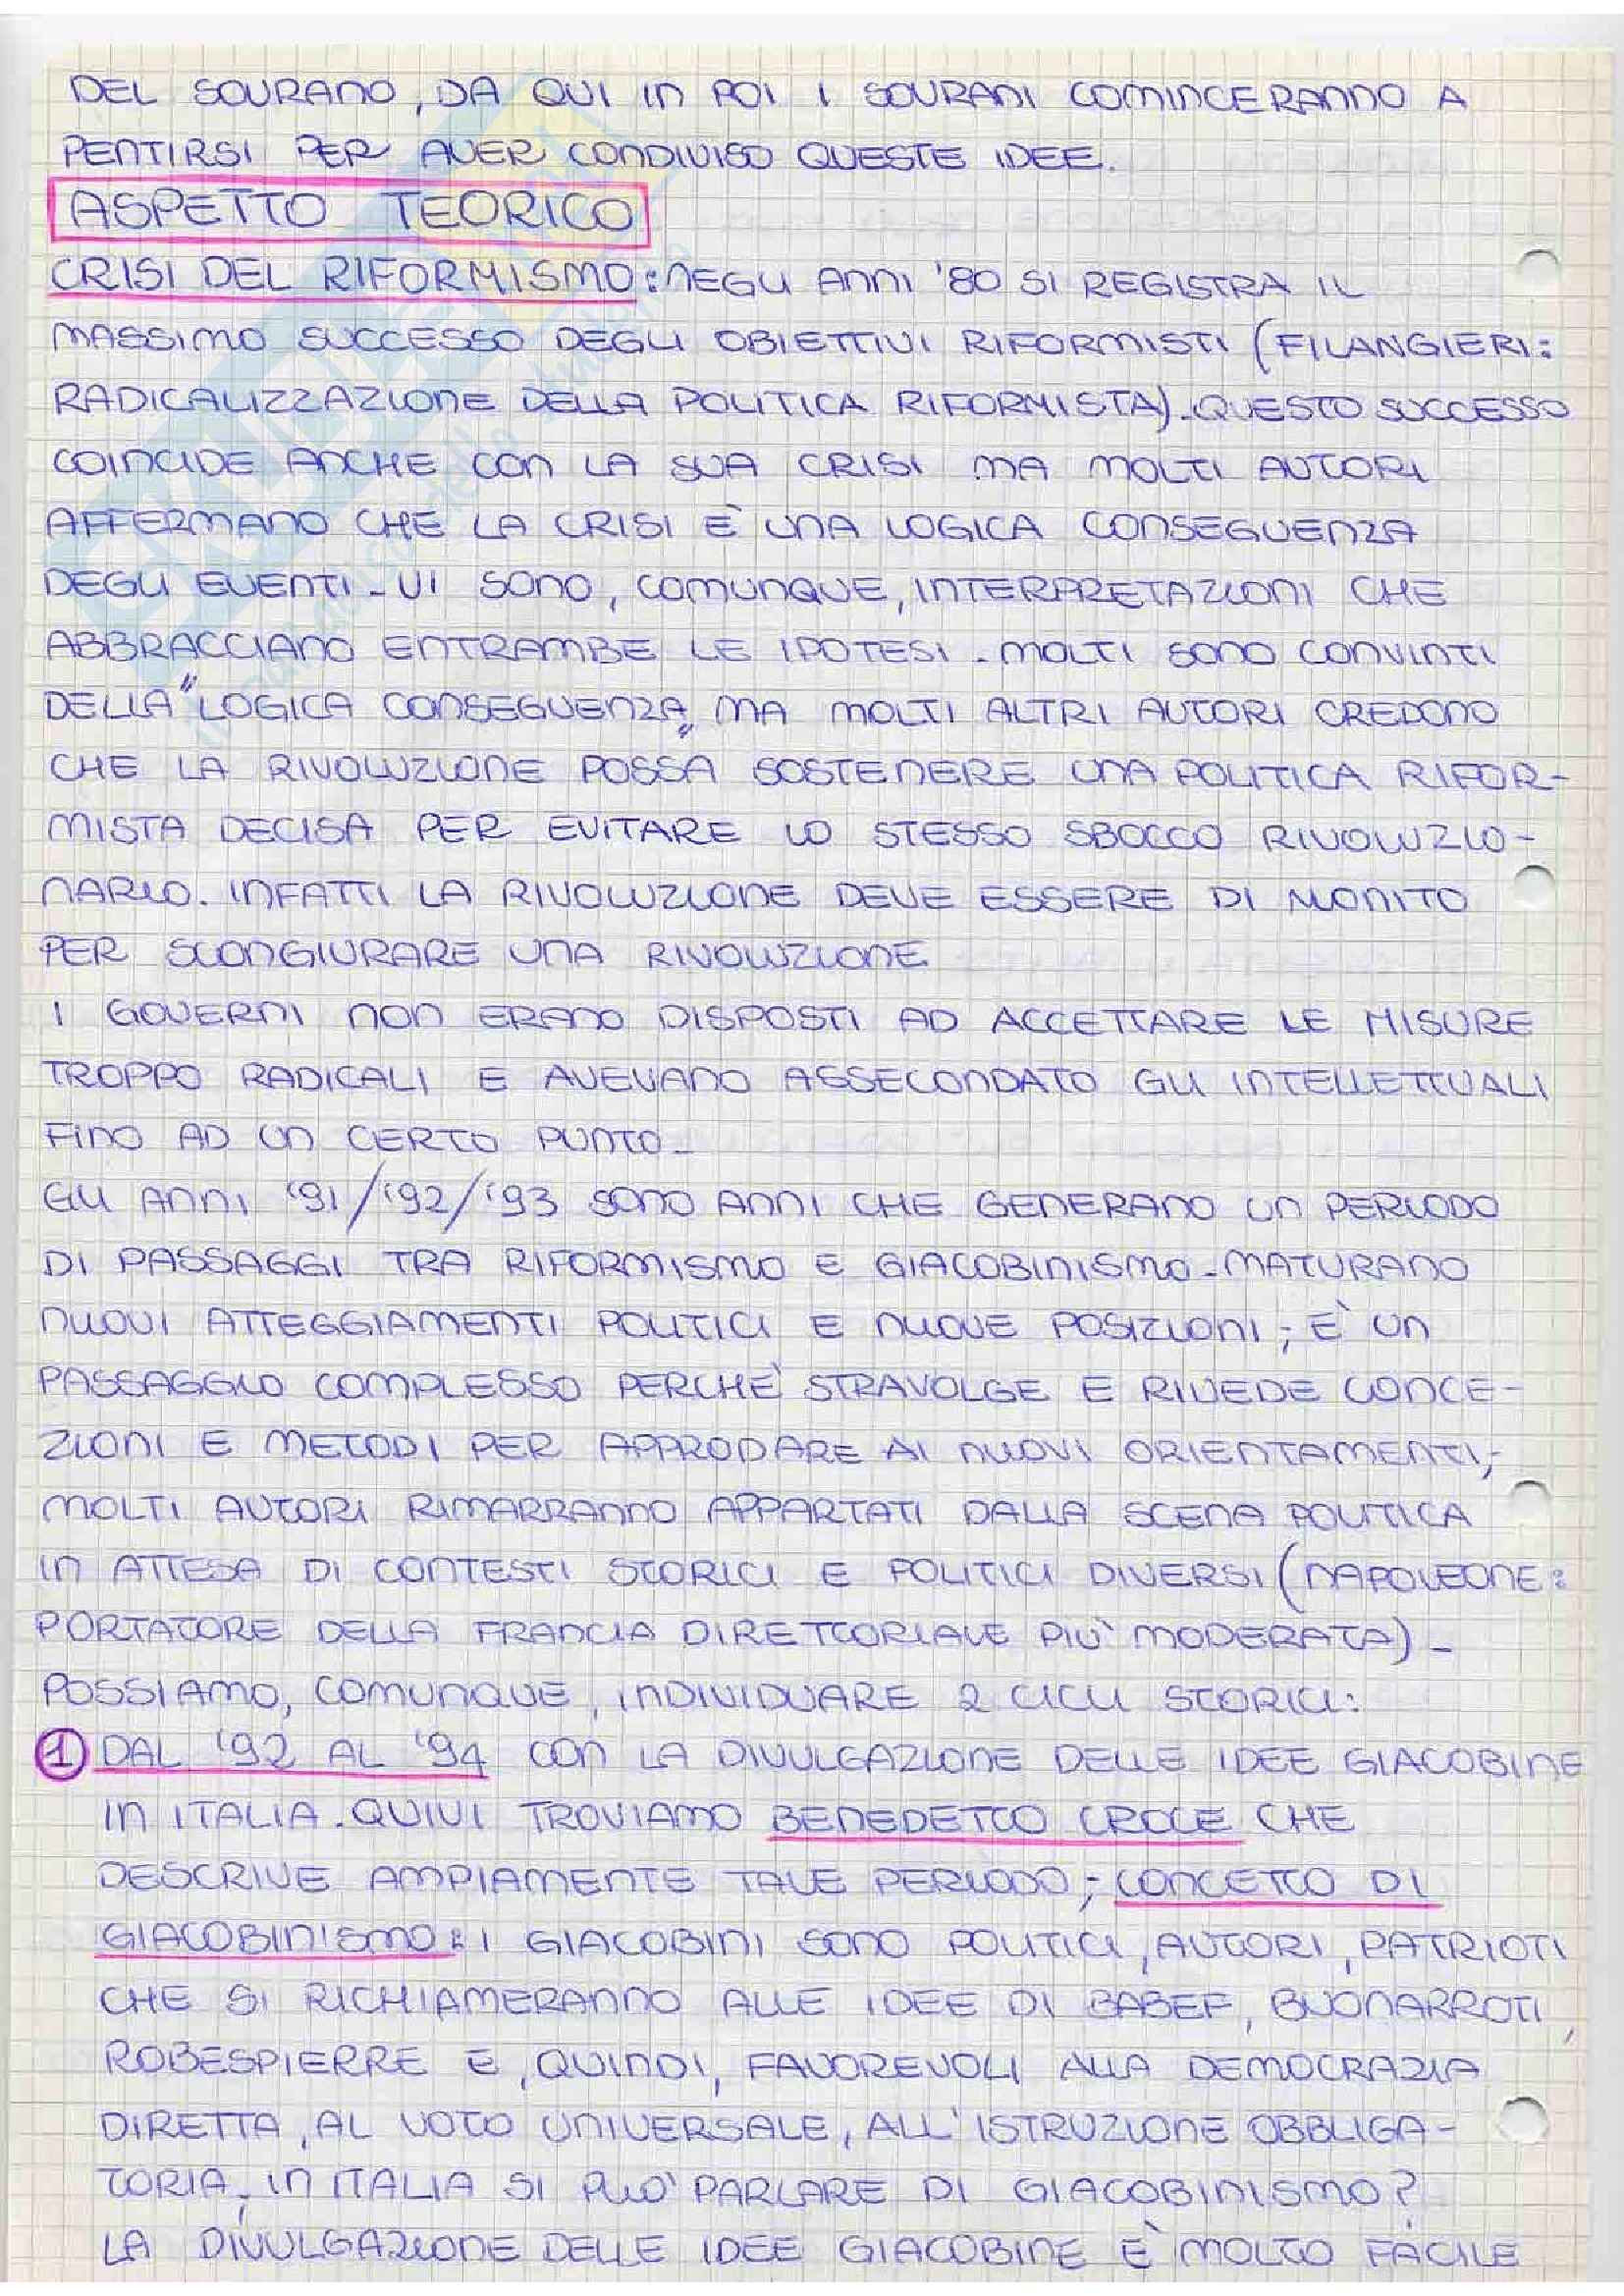 DEL SOVRANO, DA QUI IN POI I SOVRANI COMINCERANNO A
PENTIRSI PER AVER CONDIVISO QUESTE IDEE.
ASPETTO TEORICO
CRISI DEL RIFORMISMO: NEGLI ANNI '80 SI REGISTRA IL
MASSIMO SUCCESSO DEGLI OBIETTIVI RIFORMISTI (FILANGIERI:
RADICALIZZAZIONE DELLA POLITICA RIFORMISTA). QUESTO SUCCESSO
COINCIDE ANCHE CON LA SUA CRISI MA MOLTI AUTORI
AFFERMANO CHE LA CRISI E' UNA LOGICA CONSEGUENZA
DEGLI EVENTI. VI SONO, COMUNQUE, INTERPRETAZIONI CHE
ABBRACCIANO ENTRAMBE LE IPOTESI. MOLTI SONO CONVINTI
DELLA "LOGICA CONSEGUENZA" MA MOLTI ALTRI AUTORI CREDONO
CHE LA RIVOLUZIONE POSSA SOSTENERE UNA POLITICA RIFOR-
MISTA DECISA PER EVITARE LO STESSO SBOCCO RIVOLUZIO-
NARIO. INFATTI LA RIVOLUZIONE DEVE ESSERE DI MONITO
PER SCONGIURARE UNA RIVOLUZIONE
I GOVERNI NON ERANO DISPOSTI AD ACCETTARE LE MISURE
TROPPO RADICALI E AVEVANO ASSECONDATO GLI INTELLETTUALI
FINO AD UN CERTO PUNTO.
GLI ANNI '91/'92/'93 SONO ANNI CHE GENERANO UN PERIODO
DI PASSAGGI TRA RIFORMISMO E GIACOBINISMO. MATURANO
NUOVI ATTEGGIAMENTI POLITICI E NUOVE POSIZIONI; E' UN
PASSAGGIO COMPLESSO PERCHE' STRAVOLGE E RIVEDE CONCE-
ZIONI E METODI PER APPRODARE AI NUOVI ORIENTAMENTI;
MOLTI AUTORI RIMARRANNO APPARTATI DALLA SCENA POLITICA
IN ATTESA DI CONTESTI STORICI E POLITICI DIVERSI (NAPOLEONE:
PORTATORE DELLA FRANCIA DIRETTORIALE PIU' MODERATA).
POSSIAMO, COMUNQUE, INDIVIDUARE 2 CICLI STORICI:
1 DAL '92 AL '94 CON LA DIVULGAZIONE DELLE IDEE GIACOBINE
IN ITALIA. QUIVI TROVIAMO BENEDETTO CROCE CHE
DESCRIVE AMPIAMENTE TALE PERIODO; CONCETTO DI
GIACOBINISMO: I GIACOBINI SONO POLITICI, AUTORI, PATRIOTI
CHE SI RICHIAMERANNO ALLE IDEE DI BABEF, BUONARROTI,
ROBESPIERRE E, QUINDI, FAVOREVOLI ALLA DEMOCRAZIA
DIRETTA, AL VOTO UNIVERSALE, ALL'ISTRUZIONE OBBLIGA-
TORIA, IN ITALIA SI PUO' PARLARE DI GIACOBINISMO?
LA DIVULGAZIONE DELLE IDEE GIACOBINE E' MOLTO FACILE